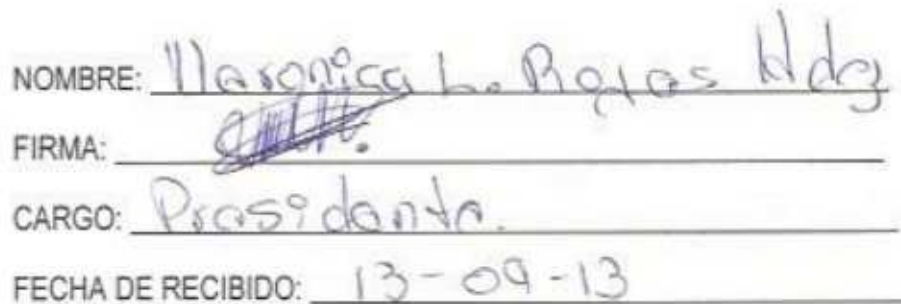 NOMBRE: Veronica L. Rojas Hdz
FIRMA:
CARGO: Presidente.
FECHA DE RECIBIDO: 13-09-13